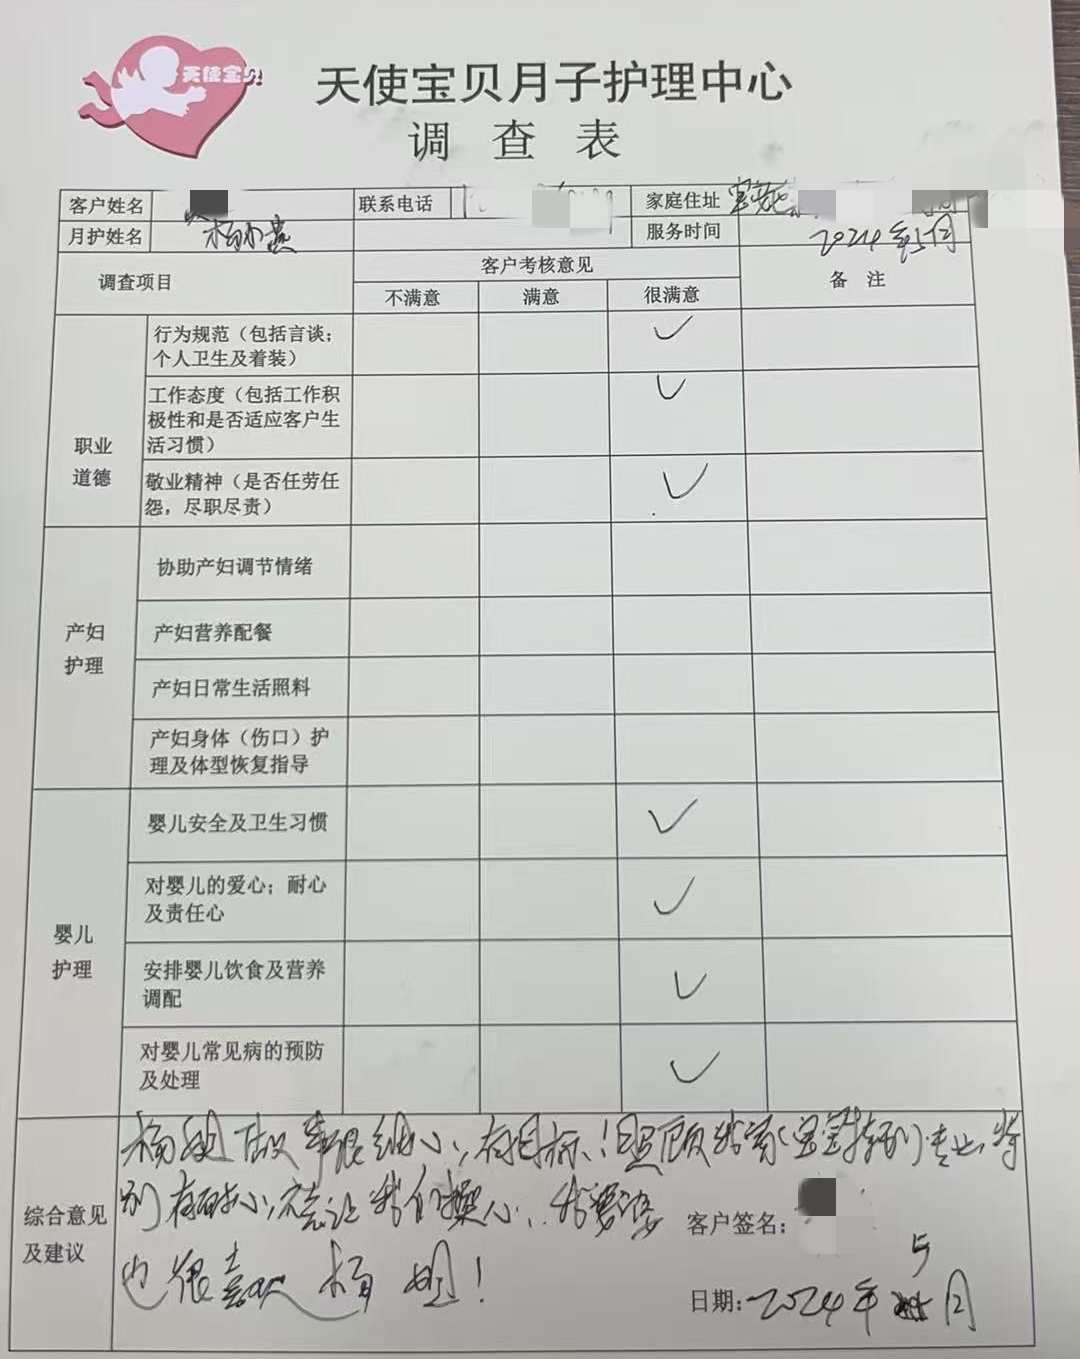 天使宝贝
天使宝贝月子护理中心
调 查 表
客户姓名 联系电话 家庭住址
月护姓名 杨小燕 服务时间 2024年5月
调查项目 客户考核意见 备 注
不满意 满意 很满意
职业
道德
行为规范（包括言谈；
个人卫生及着装）
工作态度（包括工作积
极性和是否适应客户生
活习惯）
敬业精神（是否任劳任
怨，尽职尽责）
产妇
护理
协助产妇调节情绪
产妇营养配餐
产妇日常生活照料
产妇身体（伤口）护
理及体型恢复指导
婴儿
护理
婴儿安全及卫生习惯
对婴儿的爱心；耐心
及责任心
安排婴儿饮食及营养
调配
对婴儿常见病的预防
及处理
综合意见
及建议
杨姐做事很细心，有目标！照顾我家宝宝特别专业，特
别有耐心，不会让我们操心，我婆婆
也很喜欢杨姐！
客户签名：
日期：2024年5月